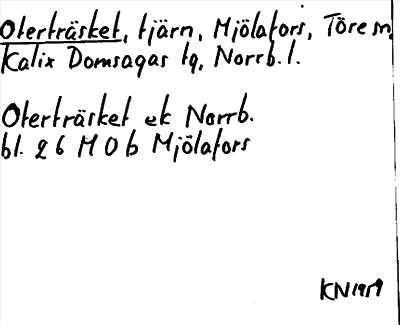 Oterträsket, tjärn, Mjölafors, Töre sn,
Kalix Domsagas tg, Norrb. l.
Oterträsket ek Norrb.
bl. 26 M 0 b Mjölafors
KN 1959